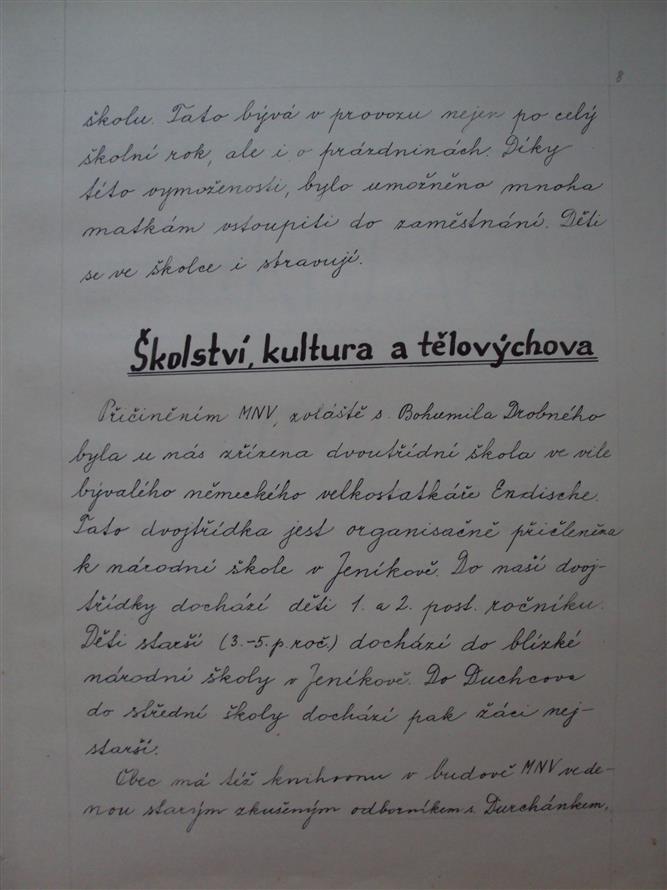 8
školu. Tato bývá v provozu nejen po celý
školní rok, ale i o prázdninách. Díky
této vymoženosti, bylo umožněno mnoha
matkám vstoupiti do zaměstnání. Děti
se ve školce i stravují.
Školství, kultura a tělovýchova
Přičiněním MNV, zvláště s. Bohumila Drobného
byla u nás zřízena dvoutřídní škola ve vile
bývalého německého velkostatkáře Endische.
Tato dvojtřídka jest organisačně přičleněna
k národní škole v Jeníkově. Do naší dvoj-
třídky dochází děti 1. a 2. post. ročníku.
Děti starší (3.-5. p. roč.) dochází do blízké
národní školy v Jeníkově. Do Duchcova
do střední školy dochází pak žáci nej-
starší.
Obec má též knihovnu v budově MNV vede-
nou starým zkušeným odborníkem s. Durchánkem,